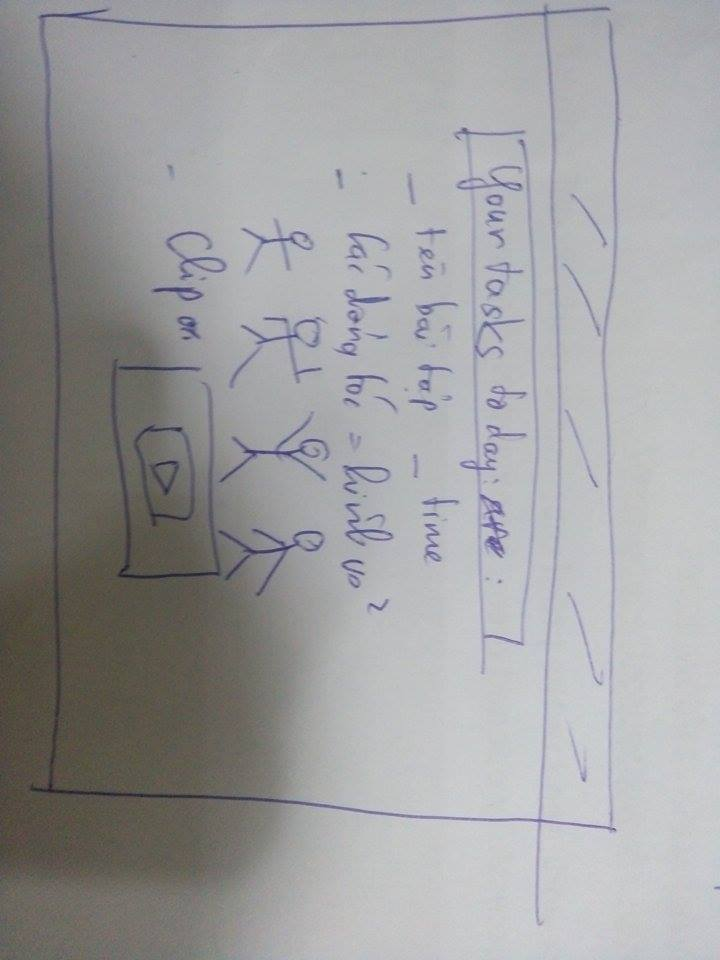 Your tasks today: :
- tên bài tập - time
- Các động tác = hình
- Clip